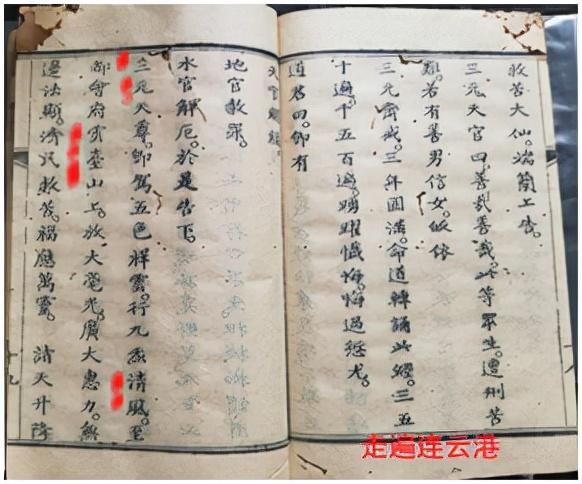 救苦大仙。端簡上告。
三元天官曰。善哉善哉。此等眾生。遭刑苦
難。若有善男信女。皈依
三元齋戒。三年圓滿。命道轉誦此經。三五
十遍。千五百遍。踴躍懺悔。悔過愆尤。
道君曰。即有
天官賜福。
地官赦罪。
水官解厄。於是告下。
三元天尊。即駕五色祥雲。行九炁清風。至
都會府雲臺山上。放大毫光。廣大惠力。無
邊法顯。濟民救苦。禍應萬靈。請天升降
走遍连云港